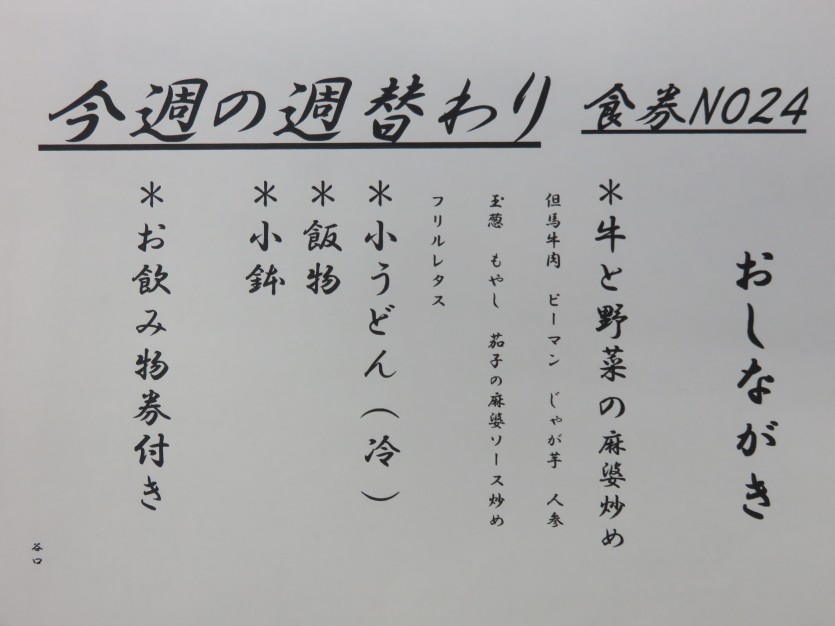 今週の週替わり
食券NO24
おしながき
＊牛と野菜の麻婆炒め
但馬牛肉　ピーマン　じゃが芋　人参
玉葱　もやし　茄子の麻婆ソース炒め
フリルレタス
＊小うどん（冷）
＊飯物
＊小鉢
＊お飲み物券付き
谷口